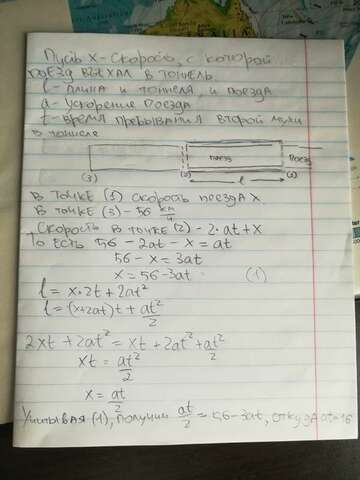 Пусть x - скорость, с которой
поезд въехал в тоннель.
l - длина и тоннеля, и поезда
a - ускорение поезда
t - время пребывания второй
в тоннеле
поезд
(3) (2) l (1)
В точке (1) скорость поезда x
В точке (3) - 56 км/ч
Скорость в точке (2) - 2·at+x
То есть 56 - 2at - x = at
56 - x = 3at
x = 56 - 3at (1)
l = x·2t + 2at²
l = (x+2at)t + at²/2
2xt + 2at² = xt + 2at² + at²/2
xt = at²/2
x = at/2
Учитывая (1), получим at/2 = 56 - 3at, откуда at=16